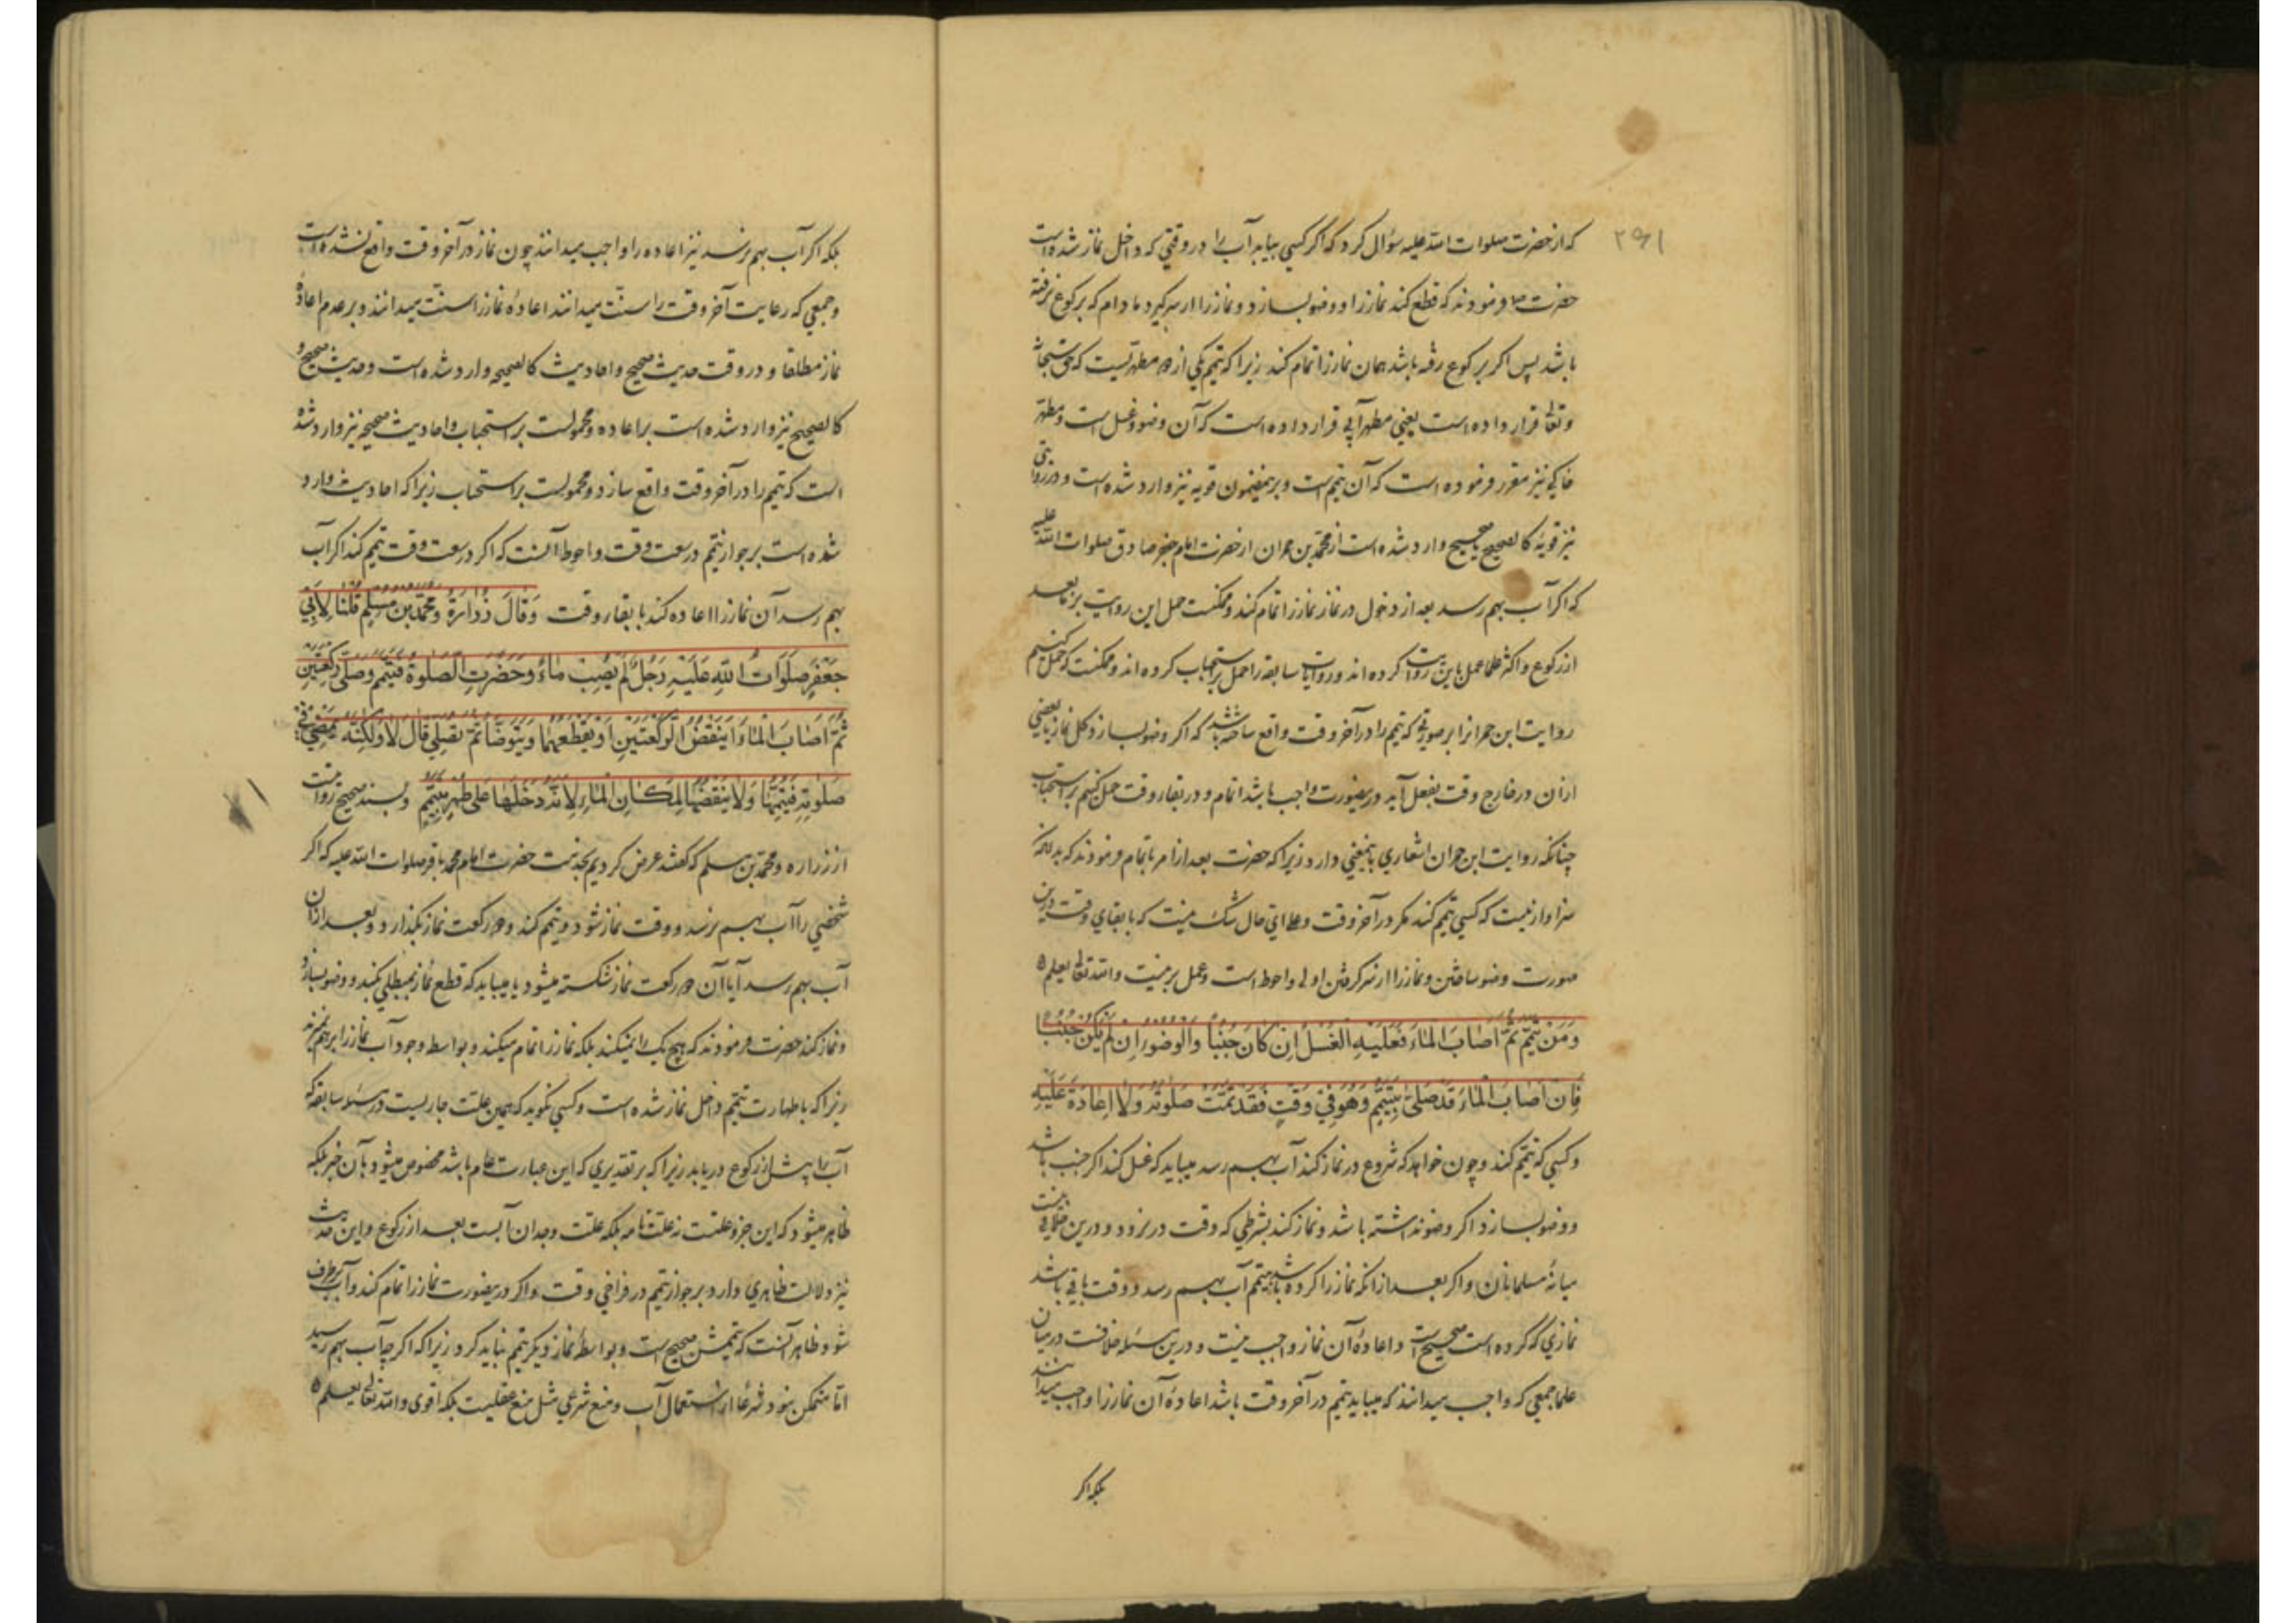 ۲۹۱
که از حضرت صلوات الله علیه سؤال کرد که اگر کسی بیابد آب را در وقتی که داخل نماز شده است
حضرت فرمودند که قطع کند نماز را و وضو بسازد و نماز را از سر گیرد مادام که برکوع نرفته
باشد پس اگر برکوع رفته باشد همان نماز را تمام کند زیرا که تیمم یکی از دو مطهر است که حق سبحانه
وتعالی قرار داده است یعنی مطهر آبی قرار داده است که آن وضو و غسل است و مطهر
خاکی نیز مقرر فرموده است که آن تیمم است و برین مضمون قویه نیز وارد شده است و در روایتی
نیز قویه کالصحیح یا صحیح وارد شده است از محمد بن حمران از حضرت امام جعفر صادق صلوات الله علیه
که اگر آب بهم رسد بعد از دخول در نماز نماز را تمام کند و ممکنست حمل این روایت بر ما بعد
از رکوع و اکثر علما عمل باین روایت کرده اند و روایات سابقه را حمل بر استحباب کرده اند و ممکنست که حمل کنیم
روایت ابن حمران را بر صورتی که تیمم را در آخر وقت واقع ساخته باشد که اگر وضو بسازد کل نماز یا بعضی
از آن در خارج وقت بفعل آید و درینصورت واجب باشد اتمام و در بقاء وقت حمل کنیم بر استحباب
چنانکه روایت ابن حمران اشعاری باینمعنی دارد زیرا که حضرت بعد از امر باتمام فرمودند که بدانکه
سزاوار نیست که کسی تیمم کند مگر در آخر وقت و علی ای حال شک نیست که با بقای وقت درین
صورت وضو ساختن و نماز را از سر گرفتن اولی و احوط است و عمل برینست والله تعالی یعلم
وَمَنْ تَيَمَّمَ ثُمَّ أَصَابَ الْمَاءَ فَعَلَيْهِ الْغُسْلُ اِنْ كَانَ جُنُبًا وَالْوُضُوءُ اِنْ لَمْ يَكُنْ جُنُبًا
فَاِنْ أَصَابَ الْمَاءَ وَقَدْ صَلَّى بِتَيَمُّمٍ وَهُوَ فِي وَقْتٍ فَقَدْ تَمَّتْ صَلٰوتُهُ وَلَا اِعَادَةَ عَلَيْهِ
و کسی که تیمم کند و چون خواهد که شروع در نماز کند آب بهم رسد میباید که غسل کند اگر جنب باشد
و وضو بسازد اگر وضو نداشته باشد و نماز کند بشرطی که وقت در نرود و درین خلافی نیست
میانهٔ مسلمانان و اگر بعد از آنکه نماز را کرده باشد بتیمم آب بهم رسد و وقت باقی باشد
نمازی که کرده است صحیح است و اعادهٔ آن نماز واجب نیست و درین مسئله خلافست در میان
علما جمعی که واجب میدانند که میباید تیمم در آخر وقت باشد اعادهٔ آن نماز را واجب میدانند
بلکه اگر
بلکه اگر آب بهم نرسد نیز اعاده را واجب میدانند چون نماز در آخر وقت واقع نشده است
و جمعی که رعایت آخر وقت را سنت میدانند اعادهٔ نماز را سنت میدانند و بر عدم اعادهٔ
نماز مطلقا و در وقت حدیث صحیح و احادیث کالصحیحه وارد شده است و حدیث صحیح و
کالصحیح نیز وارد شده است بر اعاده و محمولست بر استحباب و احادیث صحیحه نیز وارد شده
است که تیمم را در آخر وقت واقع سازد و محمولست بر استحباب زیرا که احادیث وارد
شده است بر جواز تیمم در سعت وقت و احوط آنست که اگر در سعت وقت تیمم کند اگر آب
بهم رسد آن نماز را اعاده کند با بقاء وقت وَقَالَ زُرَارَةُ وَمُحَمَّدُ بْنُ مُسْلِمٍ قُلْنَا لِأَبِي
جَعْفَرٍ صَلَوَاتُ اللهِ عَلَيْهِ رَجُلٌ لَمْ يُصِبْ مَاءً وَحَضَرَتِ الصَّلٰوةُ فَتَيَمَّمَ وَصَلَّى رَكْعَتَيْنِ
ثُمَّ أَصَابَ الْمَاءَ أَيَنْقُضُ الرَّكْعَتَيْنِ أَوْ يَقْطَعُهُمَا وَيَتَوَضَّأُ ثُمَّ يُصَلِّي قَالَ لَا وَلَكِنَّهُ يَمْضِي فِي
صَلٰوتِهِ فَيُتِمُّهَا وَلَا يَنْقُضُهَا لِمَكَانِ الْمَاءِ لِأَنَّهُ دَخَلَهَا عَلَى طُهْرٍ بِتَيَمُّمٍ و بسند صحیح روایتست
از زراره و محمد بن مسلم که گفتند عرض کردیم بخدمت حضرت امام محمد باقر صلوات الله علیه که اگر
شخصی را آب بهم نرسد و وقت نماز شود و تیمم کند و دو رکعت نماز بگذارد و بعد از آن
آب بهم رسد آیا آن دو رکعت نماز شکسته میشود یا میباید که قطع نماز بمبطلی بکند و وضو بسازد
و نماز کند حضرت فرمودند که هیچ یک را نمیکند بلکه نماز را تمام میکند و بواسطه وجود آب نماز را برهم نمیزند
زیرا که با طهارت تیمم داخل نماز شده است و کسی نگوید که همین علت جاریست در مسئله سابقه که
آب را پیش از رکوع دریابد زیرا که بر تقدیری که این عبارت عام باشد مخصوص میشود بآن خبر بلکه
ظاهر میشود که این جزو علتست نه علت تامه بلکه علت وجدان آبست بعد از رکوع و این حدیث
نیز دلالت ظاهری دارد بر جواز تیمم در فراخی وقت و اگر درینصورت نماز را تمام کند و آب برطرف
شود ظاهر آنست که تیممش صحیح است و بواسطهٔ نماز دیگر تیمم نباید کرد زیرا که اگر چه آب بهم رسید
اما متمکن نبود شرعا از استعمال آب و منع شرعی مثل منع عقلیست بلکه اقوی والله تعالی یعلم